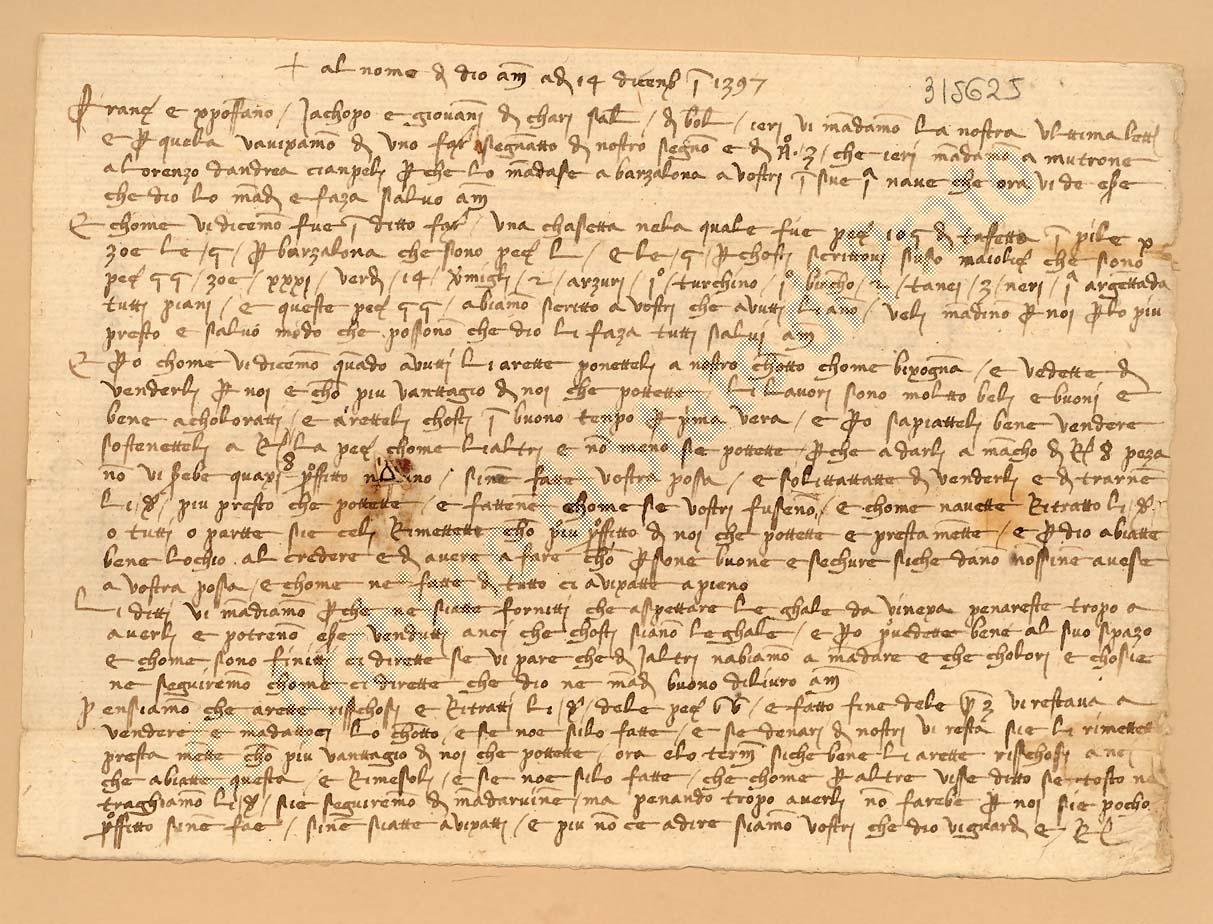 + al nome di dio am adi 14 dicenb 1397
315625
Franco e xpoffano / Jachopo e giovani di chari sal / di bol / ieri vi madamo la nostra ulttima letti
e per quela vavixamo di uno segnatto di nostro segno e di no 3 / che ieri madamo a mutrone
a lorenzo dandrea cianpeli per che lo madase a barzalona a vostri i sue 1a nave che ora vi de ese
che dio lo madi e faza salvo am
E chome vi dicemo fue i ditto / una chassetta nela quale fue peze 105 di taffetta i pile
zoe le 5 per barzalona che sono peze L / e le 5 per chosti scrittovi suso maiolica che sono
peze 55 / zoe / xxxi / verdi / 14 / vrmigli / 2 / arzuri / 1o / turchino / 1o biacho / 2 / tanei / 3 / neri / 1a argettada
tutti piani / e queste peze 55 / abiamo scritto a vostri che avutti li ano / veli madino per noi per lo piu
presto e salvo modo che possono che dio li faza tutti salvi am
E pero chome vi dicemo quado avutti li arette ponetteli a nostro chotto chome bixogna / e vedette di
venderli per noi e cho piu vanttagio di noi che pottette / li lavori sono moltto beli e buoni e
bene acholoratti / e aretteli chosti i buono tenpo per pima vera / e pero sapiatteli bene vendere
sostenetteli a la peze chome li altri e no meno se pottette per che a darli a macho di 8 peza
no vi srebe quaxi profitto / sine fatte vostra possa / e solittattatte di venderli e di trarne
li / piu presto che pottette / e fattene chome se vostri fuseno / e chome navette ritratto li
o tutti o partte sie celi rimettette cho piu profitto di noi che pottette e prestamette / e per dio abiatte
bene lochio al credere e di avere a fare cho persone buone e sechure siche dano nossine avese
a vostra possa / e chome ne fatte di tutto ci avixatte apieno
Li ditti vi madiamo per che ne siatte fornitti che aspettare le ghale da vinexa penareste tropo a
averli e potreno ese vendutti anci che chosti siano le ghale / e pero provedette bene al suo spazo
e chome sono finitti ci dirette se vi pare che di Jaltri nabiamo a madare e che cholori e chosie
ne seguiremo chome ci dirette che dio ne madi buono diliuro am
Pensiamo che arette risschosi e ritratti li / dele peze / e fatto fine dele 3 vi restava a
vendere e madattoci lo chotto / e se noe silo fatte / e se denari di nostri vi resta sie li rimettette
presta mette cho piu vanttagio di noi che pottette / ora elo termi siche bene li arette risschosi
che abiatte questa / e rimesoli / e se noe silo fatte / che chome per altre visse ditto se tosto ne
traghiamo li / sie seguiremo di madarvine / ma penando tropo averli no farebe per noi sie pocho
proffitto sine fae / sine siatte avixatti / e piu no ce a dire siamo vostri che dio vi guardi e